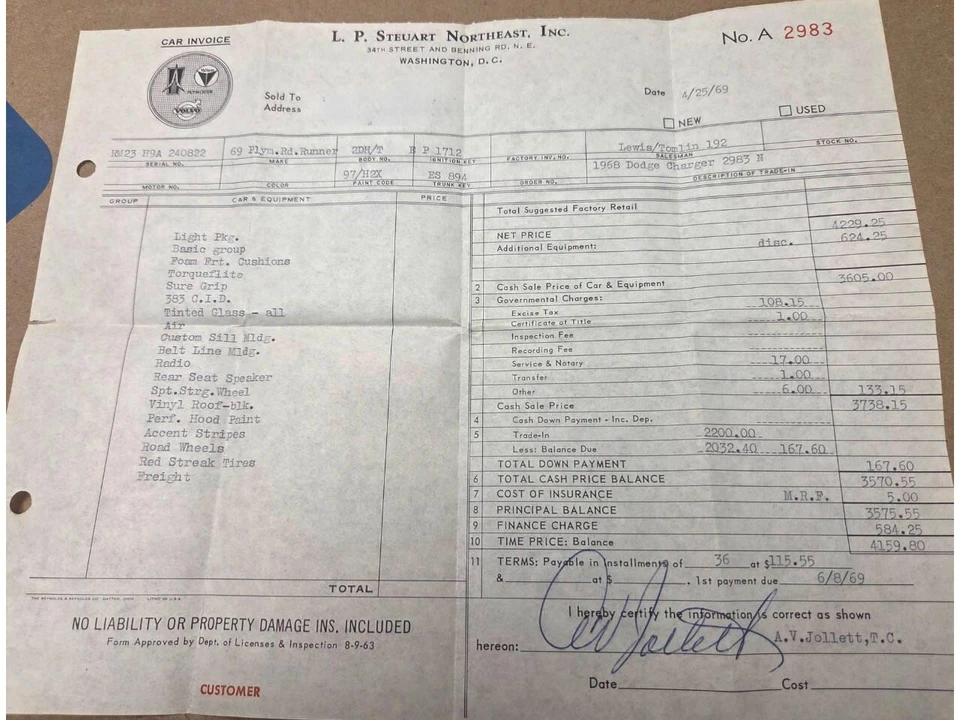 CAR INVOICE
L. P. STEUART NORTHEAST, INC.
34TH STREET AND BENNING RD. N. E.
WASHINGTON, D. C.
No. A 2983
PLYMOUTH
VOLVO
Sold To
Address
Date 4/25/69
NEW USED
RM23 H9A 240822 69 Plym.Rd.Runner 2DH/T P 1712 Lewis/Tomlin 192
SERIAL NO. MAKE BODY NO. IGNITION KEY FACTORY INV. NO. SALESMAN STOCK NO.
97/H2X ES 894 1968 Dodge Charger 2983 N
MOTOR NO. COLOR PAINT CODE TRUNK KEY ORDER NO. DESCRIPTION OF TRADE-IN
GROUP CAR & EQUIPMENT PRICE
Light Pkg.
Basic group
Foam Frt. Cushions
Torqueflite
Sure Grip
383 C.I.D.
Tinted Glass - all
Air
Custom Sill Mldg.
Belt Line Mldg.
Radio
Rear Seat Speaker
Spt.Strg.Wheel
Vinyl Roof-blk.
Perf. Hood Paint
Accent Stripes
Road Wheels
Red Streak Tires
Freight
TOTAL
Total Suggested Factory Retail
NET PRICE 4229.25
Additional Equipment: disc. 624.25
2 Cash Sale Price of Car & Equipment 3605.00
3 Governmental Charges:
Excise Tax 108.15
Certificate of Title 1.00
Inspection Fee
Recording Fee
Service & Notary 17.00
Transfer 1.00
Other 6.00 133.15
Cash Sale Price 3738.15
4 Cash Down Payment - Inc. Dep.
5 Trade-In 2200.00
Less: Balance Due 2032.40 167.60
TOTAL DOWN PAYMENT 167.60
6 TOTAL CASH PRICE BALANCE 3570.55
7 COST OF INSURANCE M.R.P. 5.00
8 PRINCIPAL BALANCE 3575.55
9 FINANCE CHARGE 584.25
10 TIME PRICE: Balance 4159.80
11 TERMS: Payable in Installments of 36 at $115.55
& at $ , 1st payment due 6/8/69
NO LIABILITY OR PROPERTY DAMAGE INS. INCLUDED
Form Approved by Dept. of Licenses & Inspection 8-9-63
CUSTOMER
I hereby certify the information is correct as shown
hereon: AV Jollett A.V.Jollett,T.C.
Date Cost